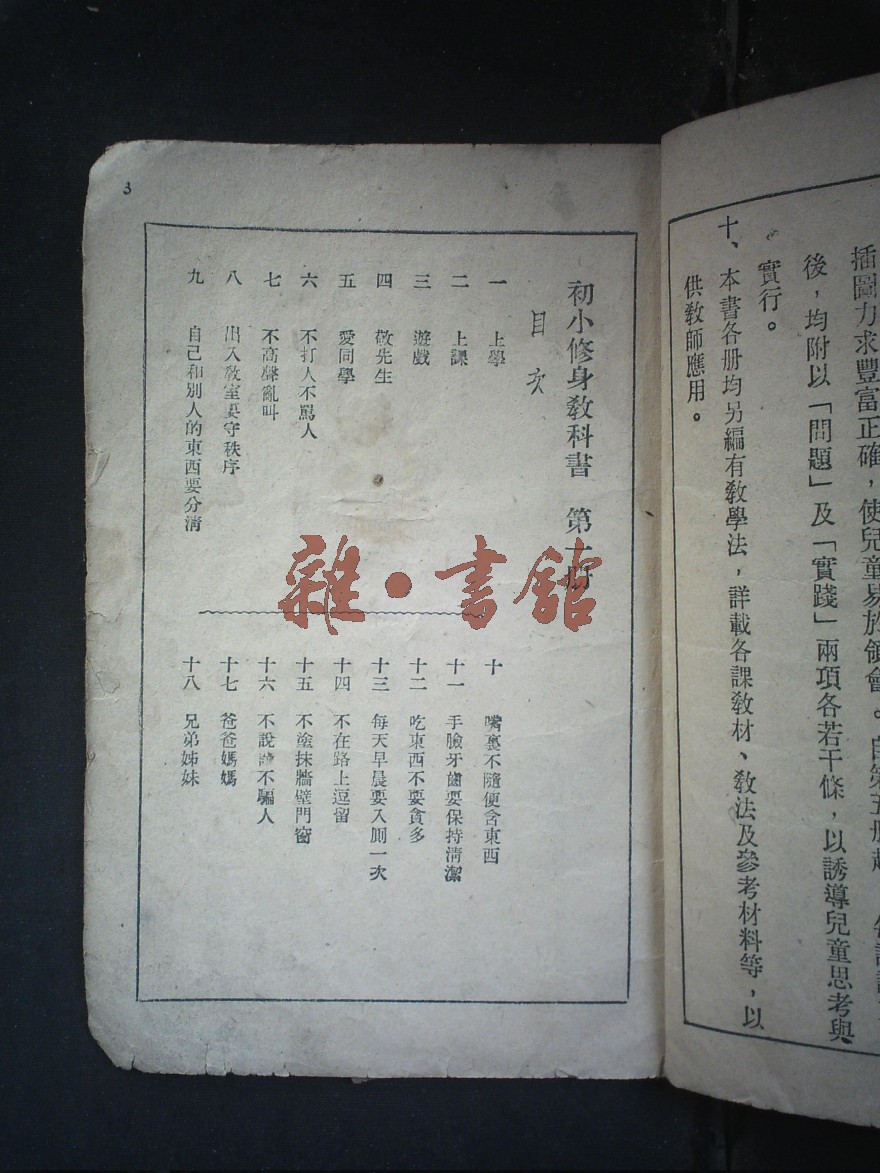 插圖力求豐富正確，使兒童易於領會。自第五册起
後，均附以「問題」及「實踐」兩項各若干條，以誘導兒童思考與
實行。
十、本書各册均另編有敎學法，詳載各課敎材、敎法及參考材料等，以
供敎師應用。
3
初小修身敎科書　第一册
目次
一　上學
二　上課
三　遊戲
四　敬先生
五　愛同學
六　不打人不罵人
七　不高聲亂叫
八　出入敎室要守秩序
九　自己和別人的東西要分清
十　嘴裏不隨便含東西
十一　手臉牙齒要保持清潔
十二　吃東西不要貪多
十三　每天早晨要入厠一次
十四　不在路上逗留
十五　不塗抹牆壁門窗
十六　不說謊不騙人
十七　爸爸媽媽
十八　兄弟姊妹
雜·書館